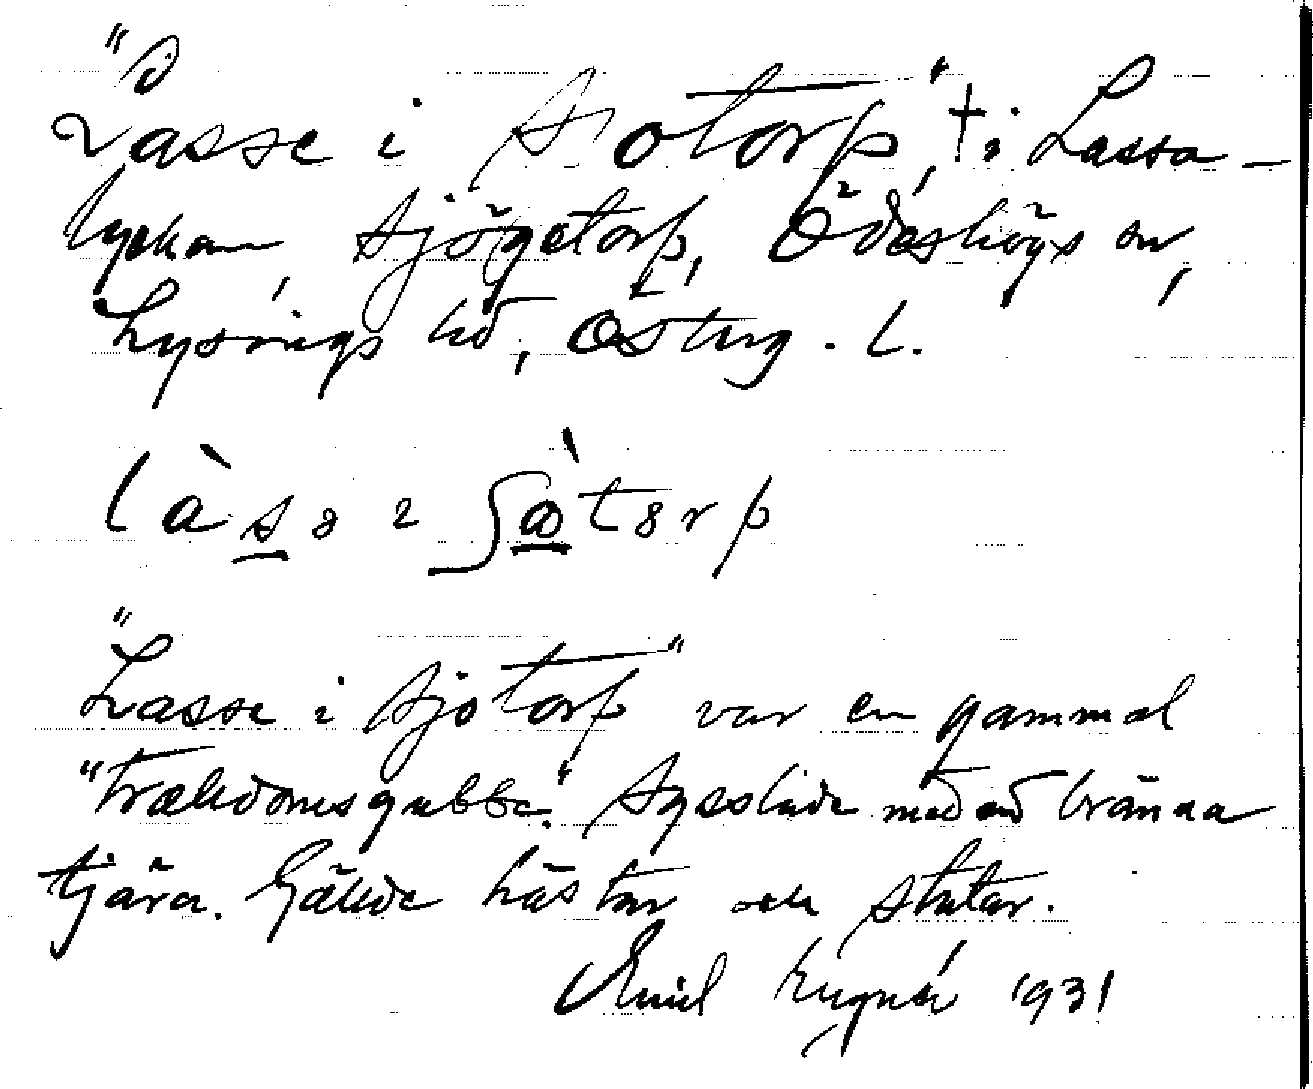 "Lasse i Sjötorp", † i Lassa-
lyckan, Sjögetorp, Ödeshögs sn,
Lysings hd, Österg. l.
làsə ɪ ʃøtərp
"Lasse i Sjötorp" var en gammal
"trälldomsgubbe." Sysslade med att bränna
tjära. Gällde hästar och stutar.
Emil 1931